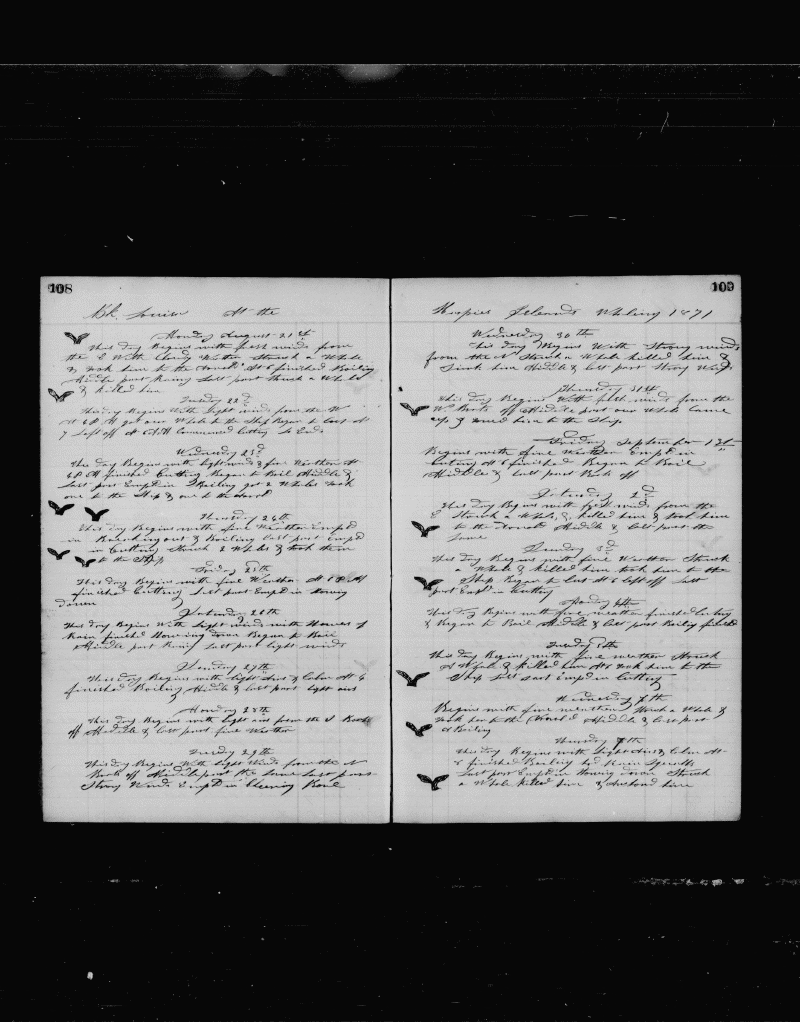 108
Bk. Louisa At the
Monday August 21st
This day Begins with fresh winds from
the E With Cloudy Weather Struck a Whale
& took him to the At 6 finished Boiling
Middle part Rainy Last part Struck a Whale
& killed him
Tuesday 22d
This day Begins With Light winds from the W
At 6 P.M got our Whale to the Ship Began to Cut At
7 Left off At 6 A.M Commenced Cutting So Ends
Wednesday 23d
This day Begins with light winds & fine Weather At
6 P.M finished Cutting Began to Boil Middle &
Last part Empd in Boiling got 2 Whales took
one to the Ship & one to the
Thursday 24th
This day Begins with fine Weather Empd
in & Boiling Last part Empd
in Cutting Struck 2 Whales & took them
to the Ship
Friday 25th
This day Begins with fine Weather At 6 P.M
finished Cutting Last part Empd in Stowing
down
Saturday 26th
This day Begins With Light winds with Showers of
Rain finished Stowing down Began to Boil
Middle part Rainy Last part light winds
Sunday 27th
This day Begins with light airs & Calms At 6
finished Boiling Middle & last part light airs
Monday 28th
This day Begins with light airs from the S Boats
off Middle & last part fine Weather
Tuesday 29th
This day Begins With light Winds from the N
Boats off Middle part the same Last part
Strong Winds Empd in Cleaning Bone
109
Islands Whaling 1871
Wednesday 30th
This day Begins With Strong winds
from the N Struck a Whale killed him &
Sunk him Middle & last part Strong Winds
Thursday 31st
This day Begins With fresh winds from the
W Boats off Middle part our Whale Came
up & towed him to the Ship
Friday September 1st
Begins with fine Weather Empd in
Cutting At 6 finished Began to Boil
Middle & last part Boats off
Saturday 2d
This day Begins with fresh winds from the
E Struck a Whale & killed him & took him
to the Middle & last part the
Same
Sunday 3d
This day Begins with fine Weather Struck
a Whale & killed him took him to the
Ship Began to Cut At 6 left off Last
part Empd in Cutting
Monday 4th
This day Begins with fine weather finished Cutting
& Began to Boil Middle & last part Boiling finished
Tuesday 5th
This day Begins with fine weather Struck
A Whale & killed him At 8 took him to the
Ship Last part Empd in Cutting
Wednesday 6th
Begins with fine weather Struck a Whale &
took him to the Middle & last part
A Boiling
Thursday 7th
This day Begins with Light Airs & Calms At
8 finished Boiling had Rain Squalls
Last part Empd in Stowing down Struck
a Whale killed him & Anchored him